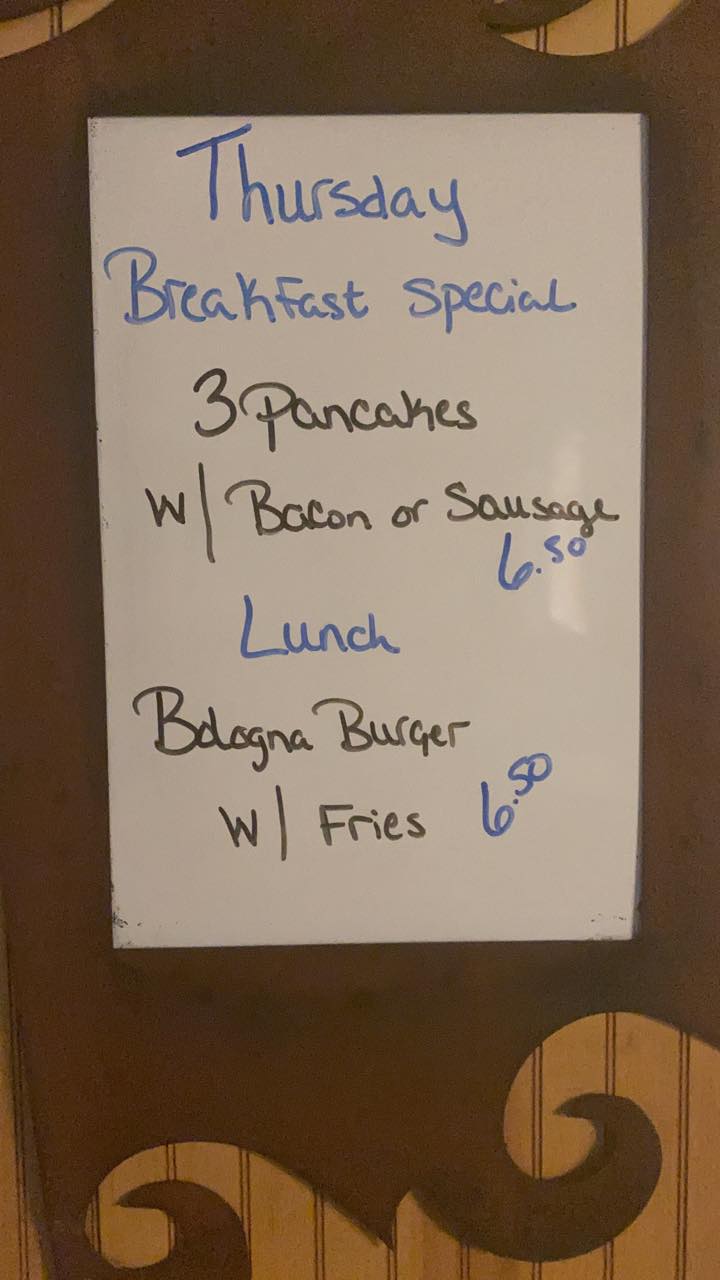 Thursday
Breakfast Special
3 Pancakes
w/ Bacon or Sausage
6.50
Lunch
Bologna Burger
w/ Fries 6.50